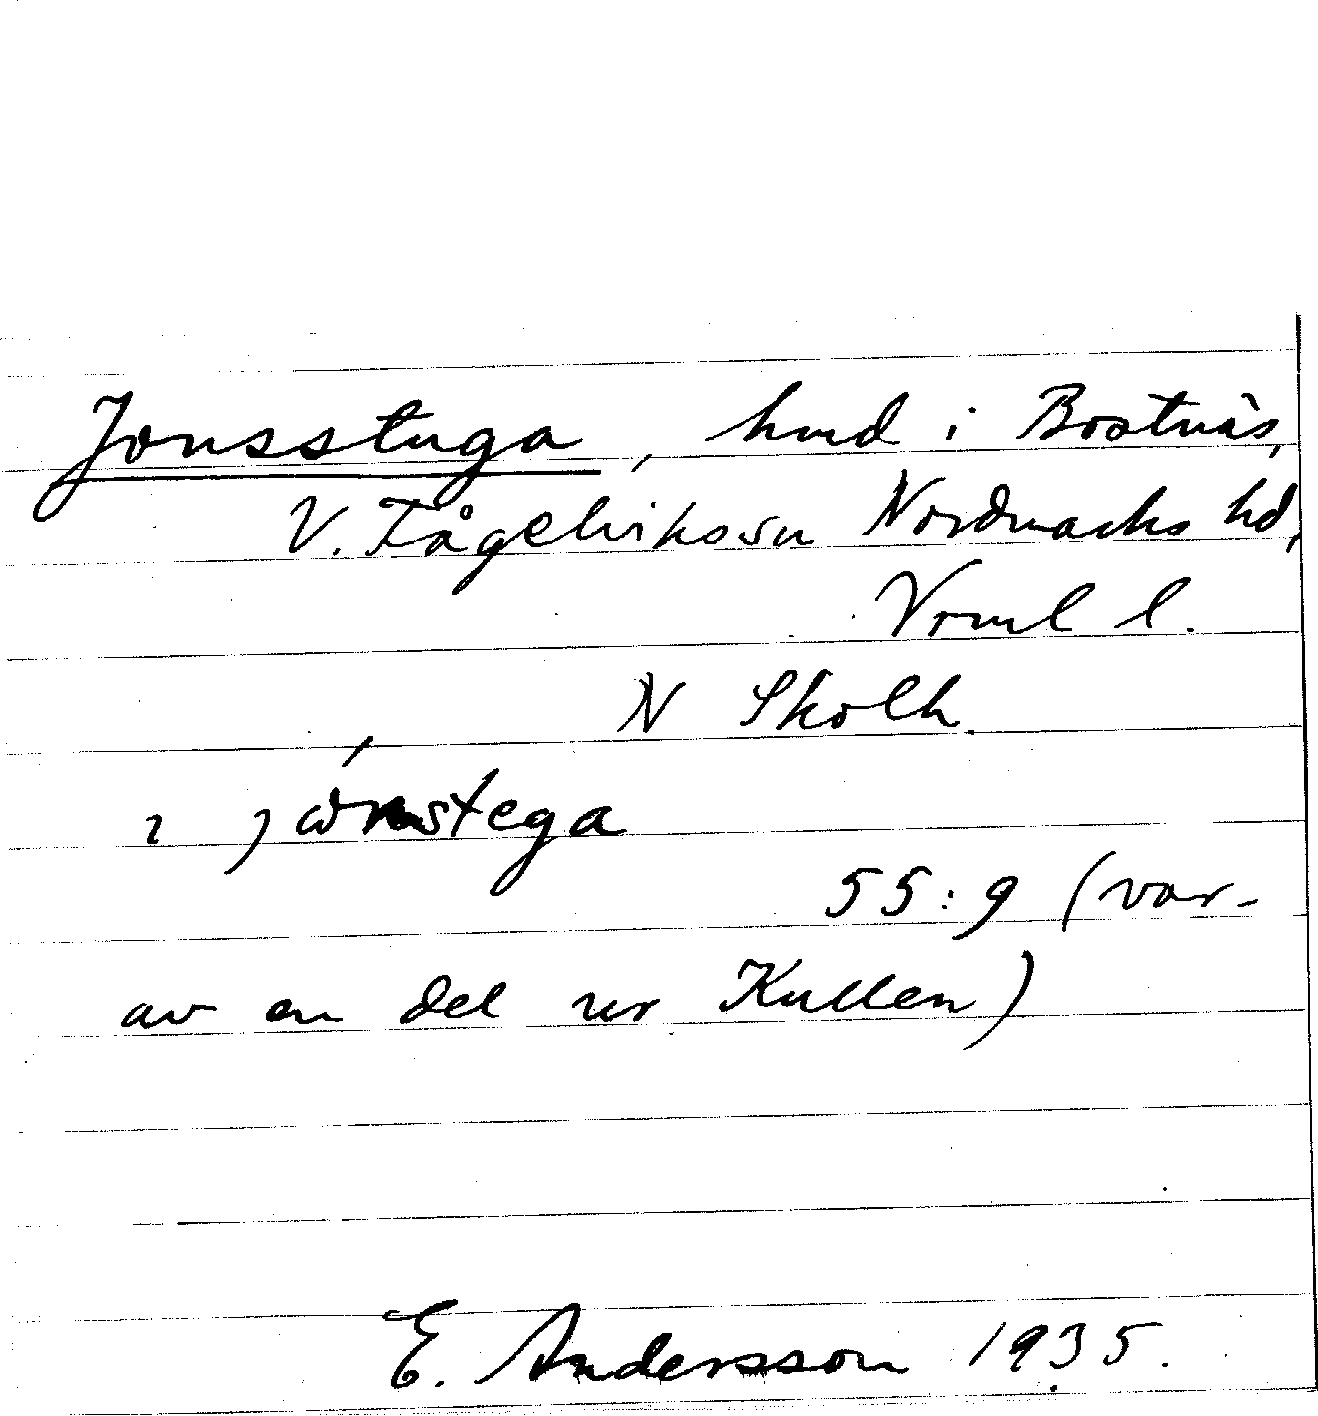 Jonsstuga, hmd i Bostnäs,
V. Fågelviks sn Nordmarks hd,
Vrml l.
N Skolh.
ɿ jɷ́nstega
55:9 (var-
av en del ur Kullen)
E. Andersson 1935.